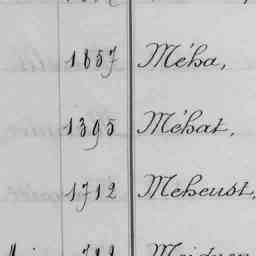 1857 Méha,
1395 Méhat,
1712 Meheust,